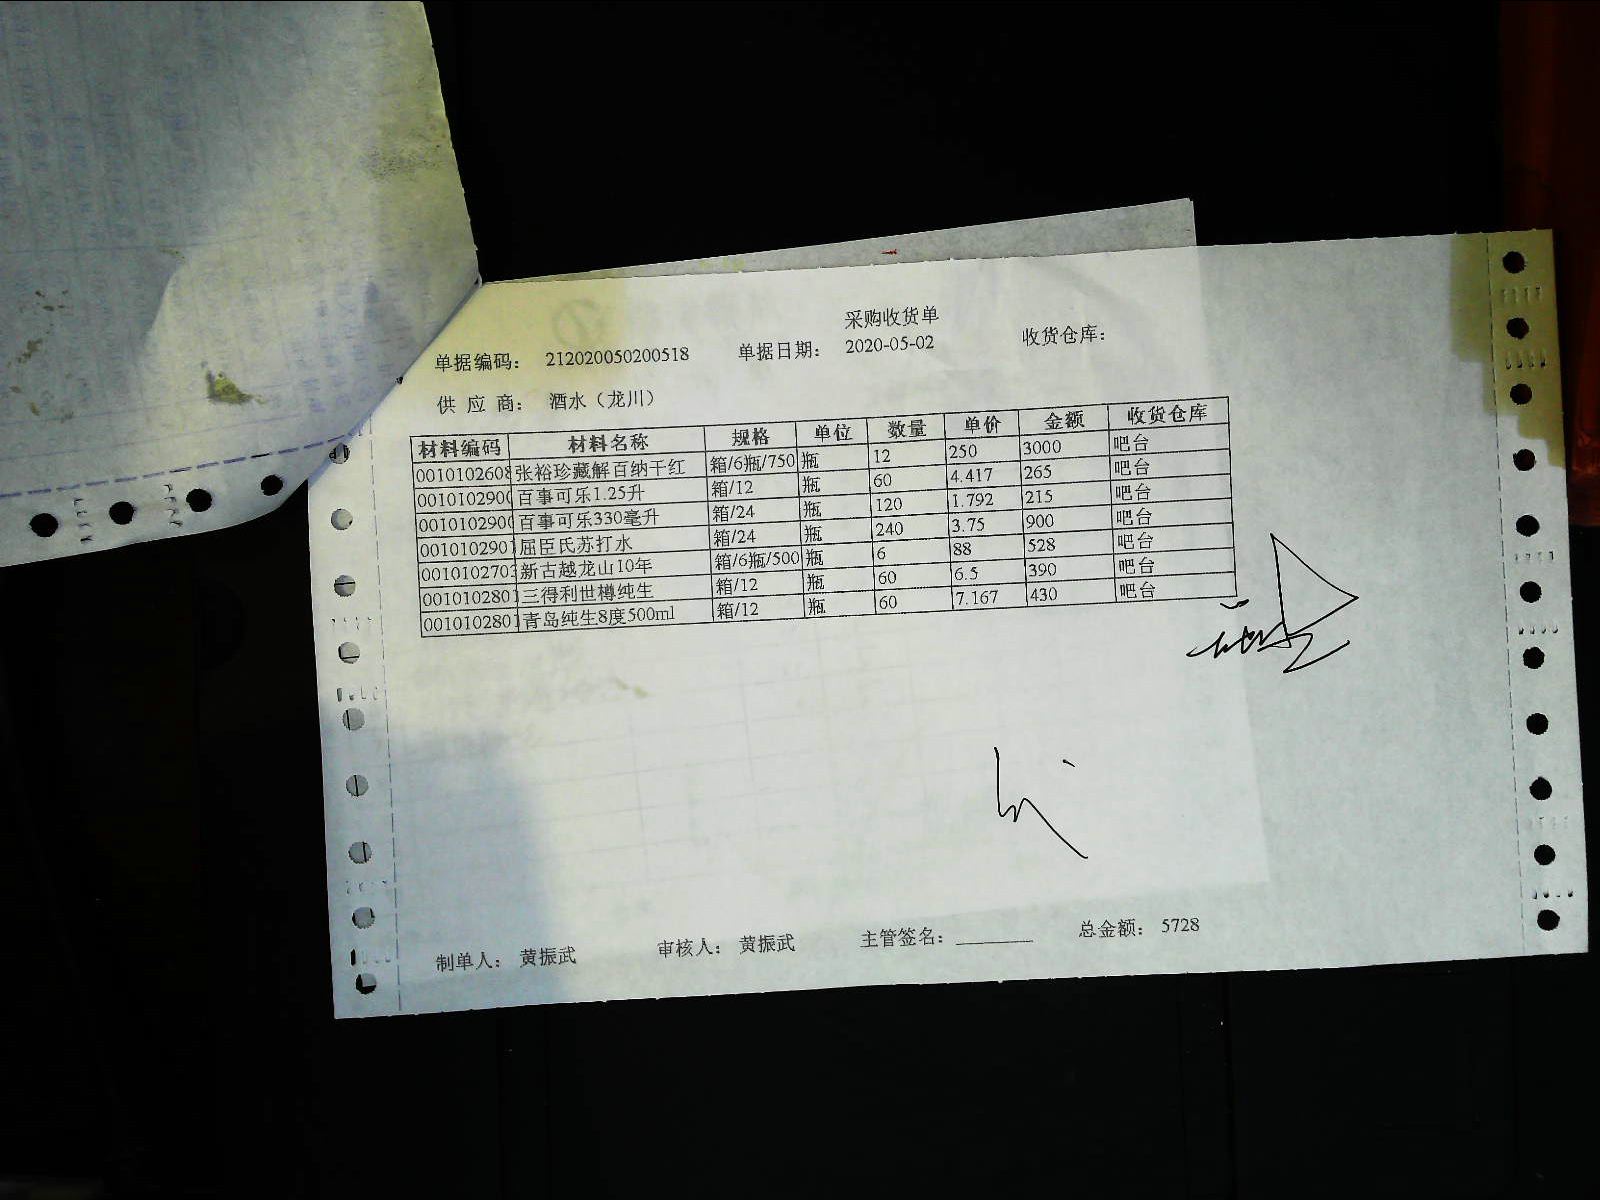 采购收货单
单据编码： 212020050200518 单据日期： 2020-05-02 收货仓库：
供 应 商： 酒水（龙川）
材料编码 材料名称 规格 单位 数量 单价 金额 收货仓库
0010102608 张裕珍藏解百纳干红 箱/6瓶/750 瓶 12 250 3000 吧台
001010290 百事可乐1.25升 箱/12 瓶 60 4.417 265 吧台
001010290 百事可乐330毫升 箱/24 瓶 120 1.792 215 吧台
001010290 屈臣氏苏打水 箱/24 瓶 240 3.75 900 吧台
001010270 新古越龙山10年 箱/6瓶/500 瓶 6 88 528 吧台
001010280 三得利世樽纯生 箱/12 瓶 60 6.5 390 吧台
001010280 青岛纯生8度500ml 箱/12 瓶 60 7.167 430 吧台
制单人： 黄振武 审核人： 黄振武 主管签名： 总金额： 5728